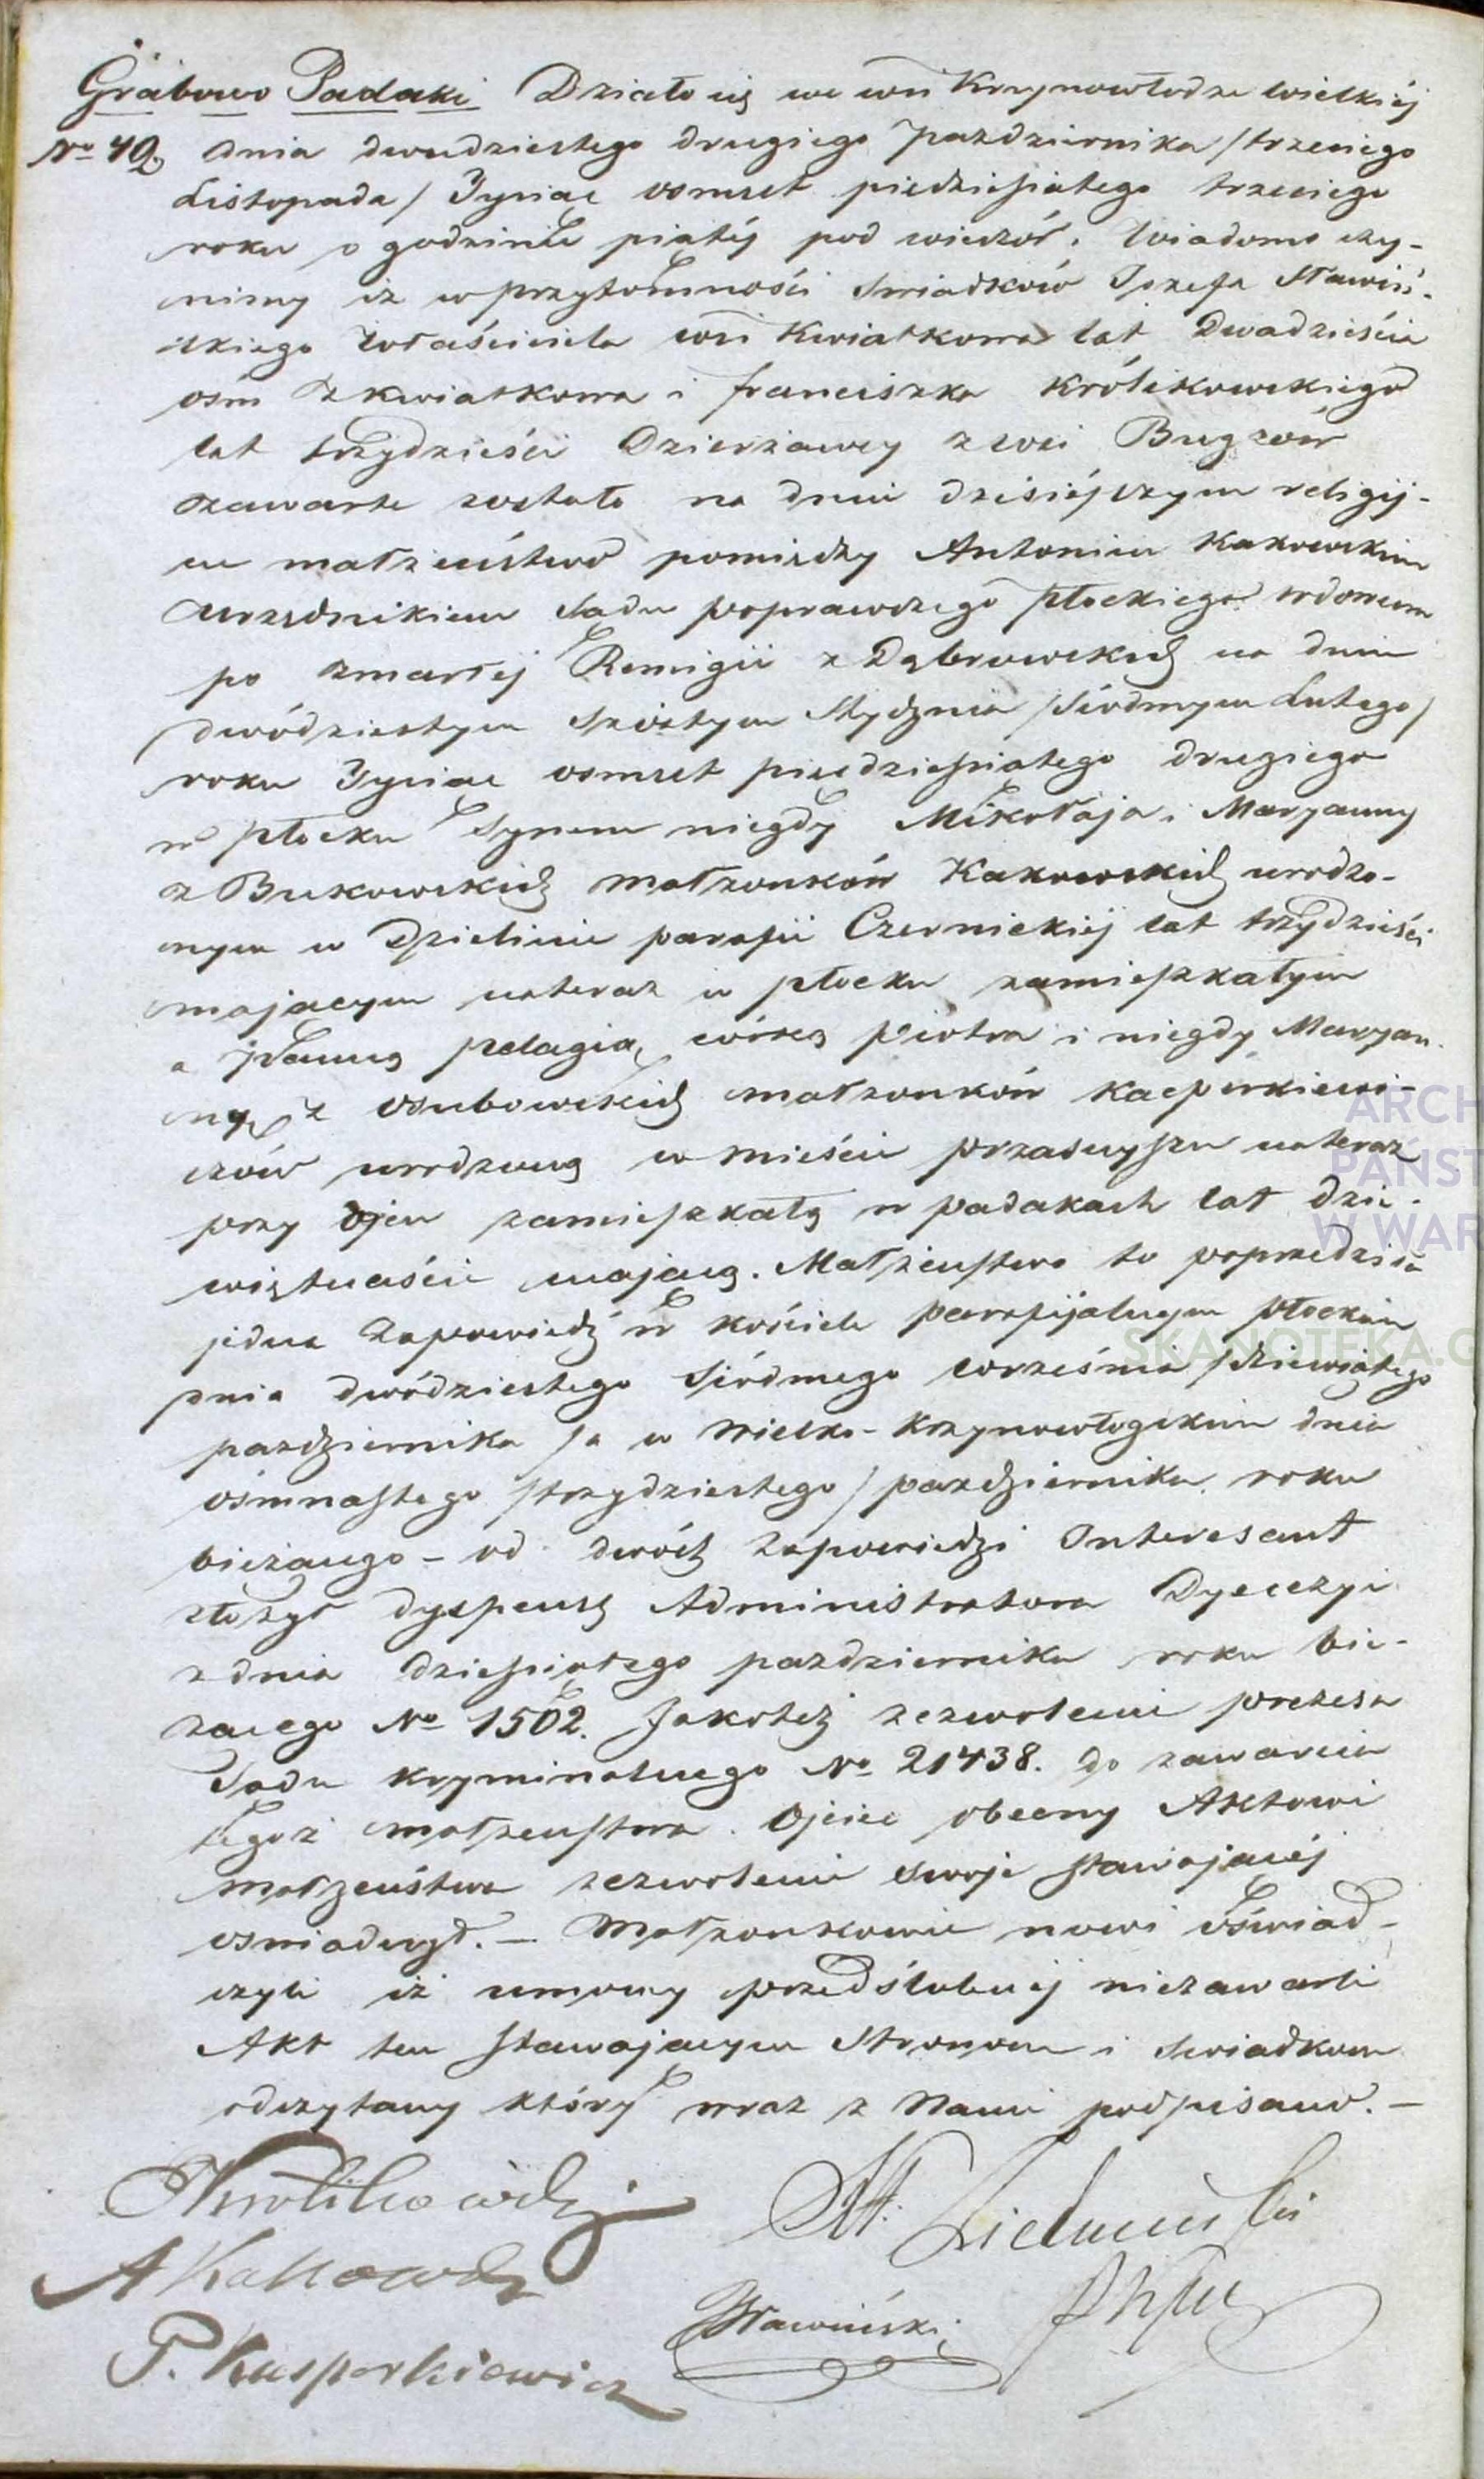 Grabowo Padaki Działo się we wsi Krzynowłodze wielkiéj
No 40. dnia dwudziestego drugiego października /trzeciego
Listopada/ Tysiąc osmset piędziesiątego trzeciego
roku o godzinie piątéj pod wieczór. Wiadomo czy-
nimy iż w przytomności Swiadków Jozefa Sławiń-
skiego Właściciela wsi Kwiatkowa lat Dwadzieścia
ośm z Kwiatkowa i franciszka Królikowskiego
lat trzydzieści Dzierżawcy z wsi Bugzów
zawarte zostało na dniu dzisiéjszym religij-
ne małżeństwo pomiędzy Antonim Kakowskim
urzędnikiem Sadu poprawczego płockiego wdowcem
po zmarłej Remigii z Dąbrowskich na dniu
dwódziestym szóstym Stycznia /siódmym Lutego/
roku Tysiąc osmset piędziesiątego drugiego
w płocku Synem niegdy Mikołaja i Maryanny
z Bukowskich małżonków Kakowskich urodzo-
nym w Dzielinie parafii Czernickiéj lat trzydzieści
mającym nateraz w płocku zamieszkałym
a Panną pelagią córką piotra i niegdy Maryan-
ny z osubowskich małżonków Kacperkiewi-
czów urodzoną w mieście przasnyszu nateraz
przy ojcu zamieszkałą w padakach lat dzie-
więtnaście mającą. Małżeństwo to poprzedziła
jedna Zapowiedź w kościele parafijalnym płockim
dnia dwódziestego Siódmego września /dziewiątego
października/ a w Wielko-Krzynowłogskim dnia
ośmnastego /trzydziestego/ października roku
bieżącego – od dwóch Zapowiedzi Interesant
złożył dyspensę Administratora Dyecezyi
z dnia dziesiątego pazdziernika roku bie-
żącego No 1502. Jakotéż zezwolenie prezesa
Sadu kryminalnego No 21438. do zawarcia
tegoż małżeństwa. Ojciec obecny Aktowi
małżeństwa zezwolenie swoje stawającéj
oświadczył. – Małżonkowie nowi oświad-
czyli iż umowy przedślubnéj niezawarli
Akt ten stawającym Stronom i Swiadkom
odczytany który wraz z Nami podpisano. –
FKrolikowski
AKakowski
JSławiński
P. Kasperkiewicz
ARCH
PAŃST
W WAR
SKANOTEKA.G